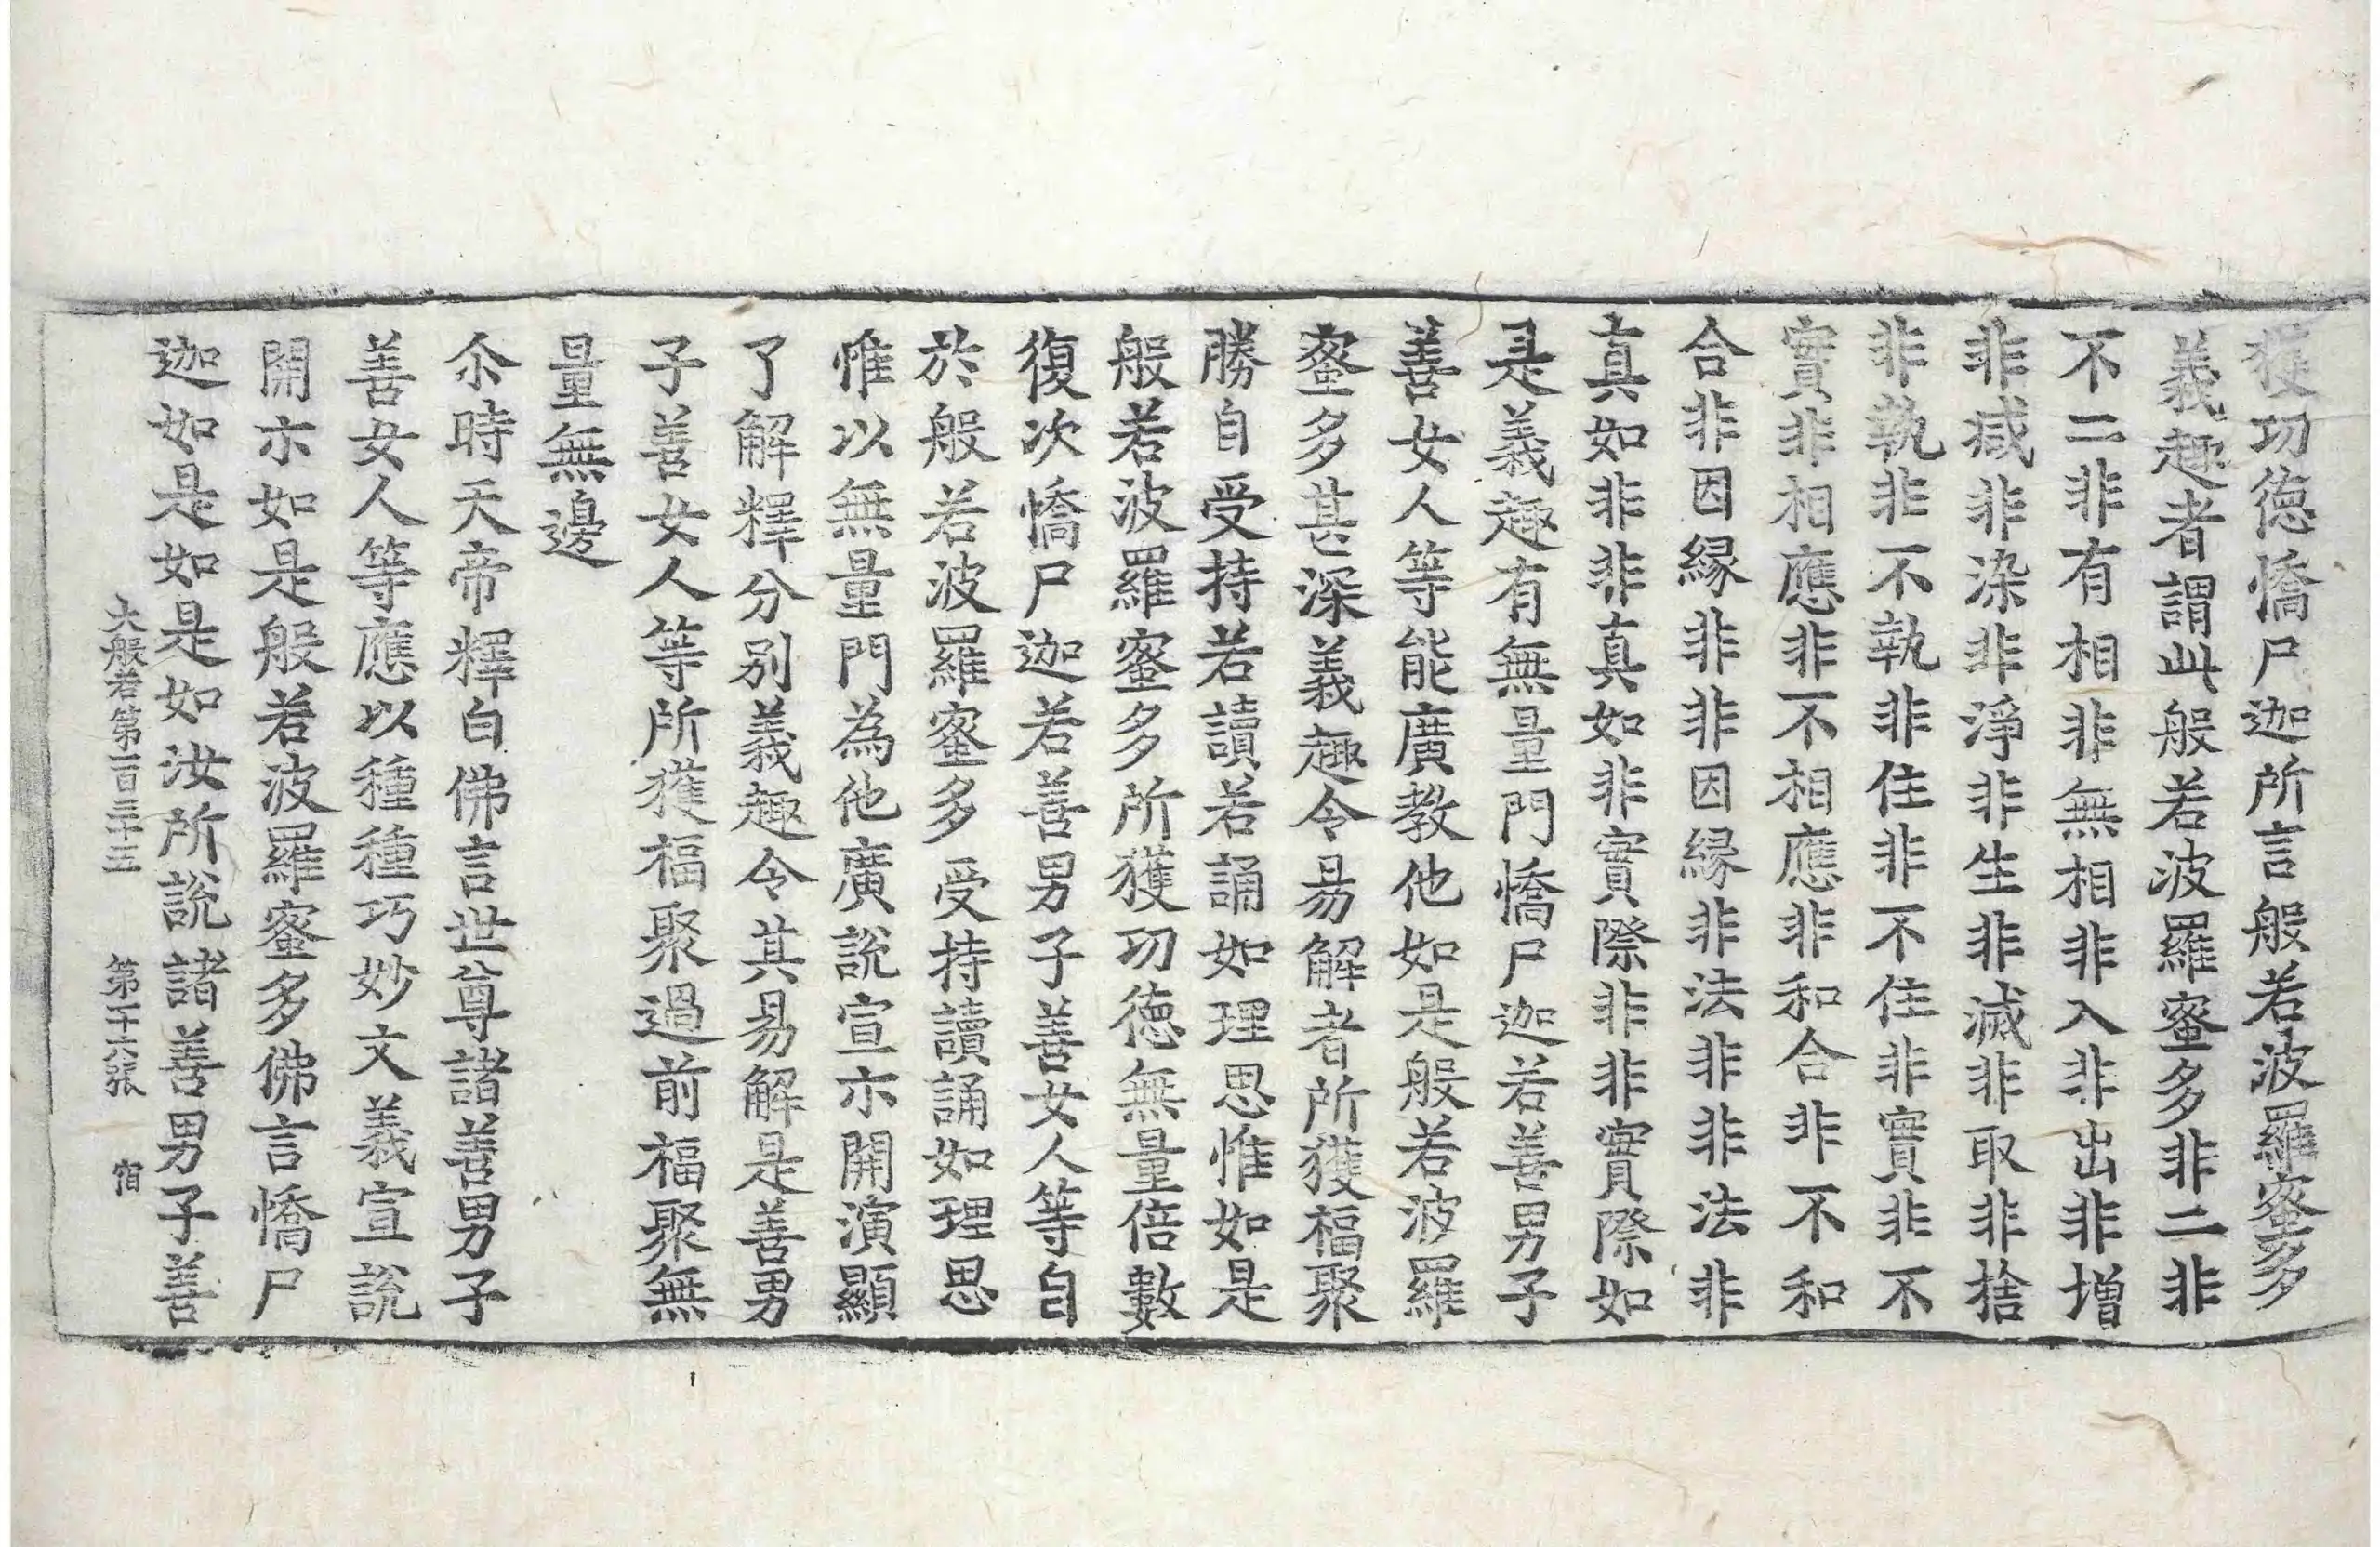 獲功德憍尸迦所言般若波羅蜜多
義趣者謂此般若波羅蜜多非二非
不二非有相非無相非入非出非增
非減非染非淨非生非滅非取非捨
非執非不執非住非不住非實非不
實非相應非不相應非和合非不和
合非因緣非非因緣非法非非法非
真如非非真如非實際非非實際如
是義趣有無量門憍尸迦若善男子
善女人等能廣教他如是般若波羅
蜜多甚深義趣令易解者所獲福聚
勝自受持若讀若誦如理思惟如是
般若波羅蜜多所獲功德無量倍數
復次憍尸迦若善男子善女人等自
於般若波羅蜜多受持讀誦如理思
惟以無量門為他廣說宣示開演顯
了解釋分別義趣令其易解是善男
子善女人等所獲福聚過前福聚無
量無邊
尒時天帝釋白佛言世尊諸善男子
善女人等應以種種巧妙文義宣說
開示如是般若波羅蜜多佛言憍尸
迦如是如是如汝所說諸善男子善
大般若第一百三十三 第二十六張 宿